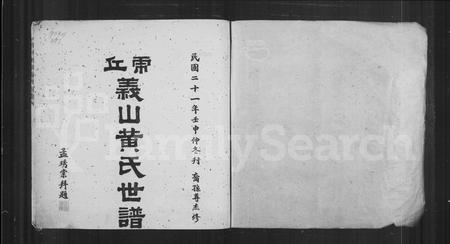 民國二十一年壬申仲冬刊 裔孫尊杰修
虎丘
義山黃氏世譜
FamilySearch